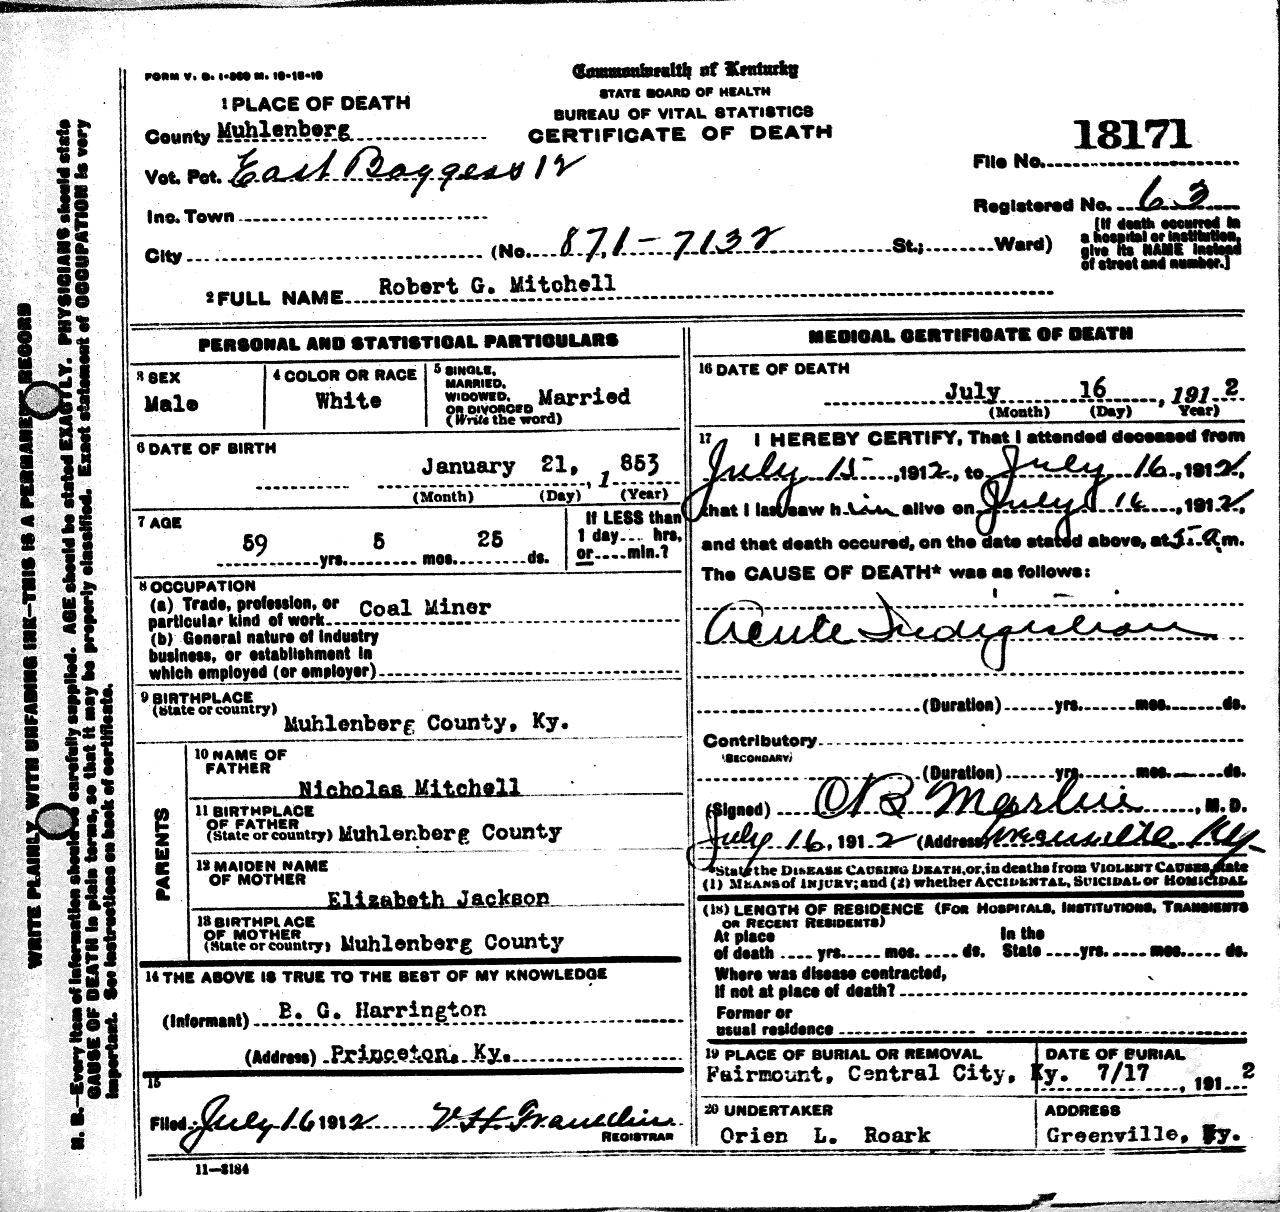 FORM V. S. 1-200 M. 10-18-10
Commonwealth of Kentucky
STATE BOARD OF HEALTH
BUREAU OF VITAL STATISTICS
CERTIFICATE OF DEATH
1 PLACE OF DEATH
County Muhlenberg
Vot. Pct. East Boggess 12
Inc. Town
City (No. 871-7132 St.; Ward)
18171
File No.
Registered No. 63
[If death occurred in
a hospital or institution,
give its NAME instead
of street and number.]
2 FULL NAME Robert G. Mitchell
PERSONAL AND STATISTICAL PARTICULARS
3 SEX
Male
4 COLOR OR RACE
White
5 SINGLE,
MARRIED,
WIDOWED,
OR DIVORCED
(Write the word)
Married
6 DATE OF BIRTH
January 21, 1 853
(Month) (Day) (Year)
7 AGE
59 yrs. 5 mos. 25 ds.
If LESS than
1 day.... hrs,
or.....min.?
8 OCCUPATION
(a) Trade, profession, or
particular kind of work Coal Miner
(b) General nature of industry
business, or establishment in
which employed (or employer)
9 BIRTHPLACE
(State or country)
Muhlenberg County, Ky.
PARENTS
10 NAME OF
FATHER
Nicholas Mitchell
11 BIRTHPLACE
OF FATHER
(State or country) Muhlenberg County
12 MAIDEN NAME
OF MOTHER
Elizabeth Jackson
13 BIRTHPLACE
OF MOTHER
(State or country) Muhlenberg County
14 THE ABOVE IS TRUE TO THE BEST OF MY KNOWLEDGE
(Informant) B. G. Harrington
(Address) Princeton, Ky.
15
Filed July 16 1912 V H Franklin
REGISTRAR
11-3184
MEDICAL CERTIFICATE OF DEATH
16 DATE OF DEATH
July 16 , 191 2
(Month) (Day) Year)
17 I HEREBY CERTIFY, That I attended deceased from
July 15 , 1912, to July 16, 1912,
that I last saw h im alive on July 16 , 1912,
and that death occured, on the date stated above, at 5 a m.
The CAUSE OF DEATH* was as follows:
Acute Indigistion
(Duration) yrs. mos. ds.
Contributory
(SECONDARY)
(Duration) yrs. mos. ds.
(Signed) O B Martin , M. D.
July 16, 191 2 (Address) Ky
*State the DISEASE CAUSING DEATH, or, in deaths from VIOLENT CAUSES, state
(1) MEANS of INJURY; and (2) whether ACCIDENTAL, SUICIDAL or HOMICIDAL
(18) LENGTH OF RESIDENCE (FOR HOSPITALS, INSTITUTIONS, TRANSIENTS
OR RECENT RESIDENTS)
At place In the
of death .... yrs. mos. ds. State yrs. mos. ds.
Where was disease contracted,
If not at place of death?
Former or
usual residence
19 PLACE OF BURIAL OR REMOVAL
Fairmount, Central City, Ky.
DATE OF BURIAL
7/17 , 191 2
20 UNDERTAKER
Orien L. Roark
ADDRESS
Greenville, Ky.
WRITE PLAINLY, WITH UNFADING INK—THIS IS A PERMANENT RECORD
N. B.—Every item of information should be carefully supplied. AGE should be stated EXACTLY. PHYSICIANS should state
CAUSE OF DEATH in plain terms, so that it may be properly classified. Exact statement of OCCUPATION is very
important. See instructions on back of certificate.